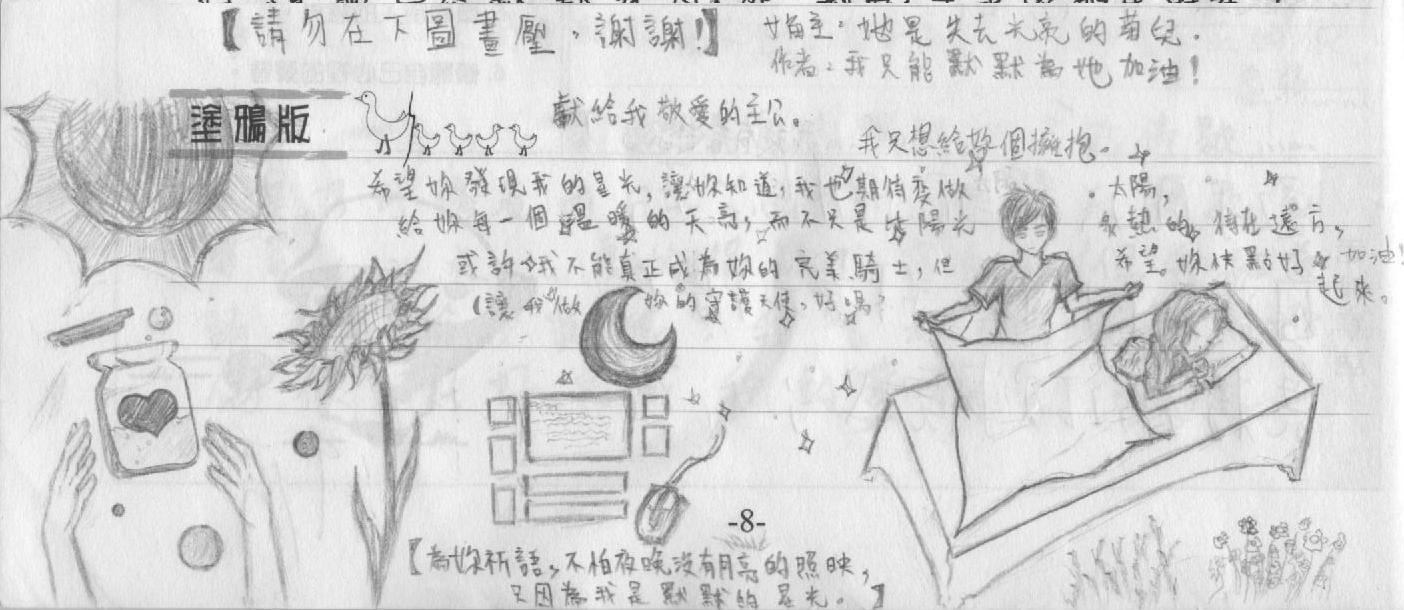 【請勿在下圖畫壓,謝謝!】
她是失去光亮的萌兒.
作者:我只能默默為她加油!
塗鴉版
獻給我敬愛的主公。
我只想給妳個擁抱。
希望妳發現我的星光,讓妳知道,我也期待要做太陽,
給妳每一個溫暖的天亮,而不只是 陽光 熱的 待在遠方。
或許我不能真正成為妳的完美騎士,但
希望妳快點好起來。
加油!
(讓我做妳的守護天使,好嗎?
-8-
【為妳祈語,不怕夜晚沒有月亮的照映,
只因為我是默默的星光。】